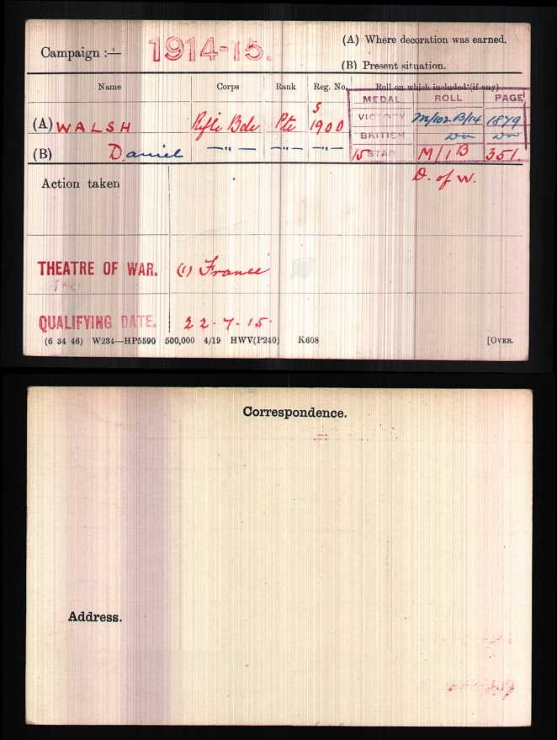 Campaign :— 1914-15.
(A) Where decoration was earned.
(B) Present situation.
Name Corps Rank Reg. No. Roll on which included (if any)
MEDAL ROLL PAGE
(A) WALSH Rifle Bde Pte S 1900
VICTORY M/102 B/14 1879
BRITISH Do Do
(B) Daniel —"— —"— —"—
15 STAR M/1B 351.
Action taken
D. of W.
THEATRE OF WAR. (1) France
QUALIFYING DATE. 22.7.15.
(6 34 46) W234—HP5590 500,000 4/19 HWV(P240) K608 [OVER.
Correspondence.
Address.